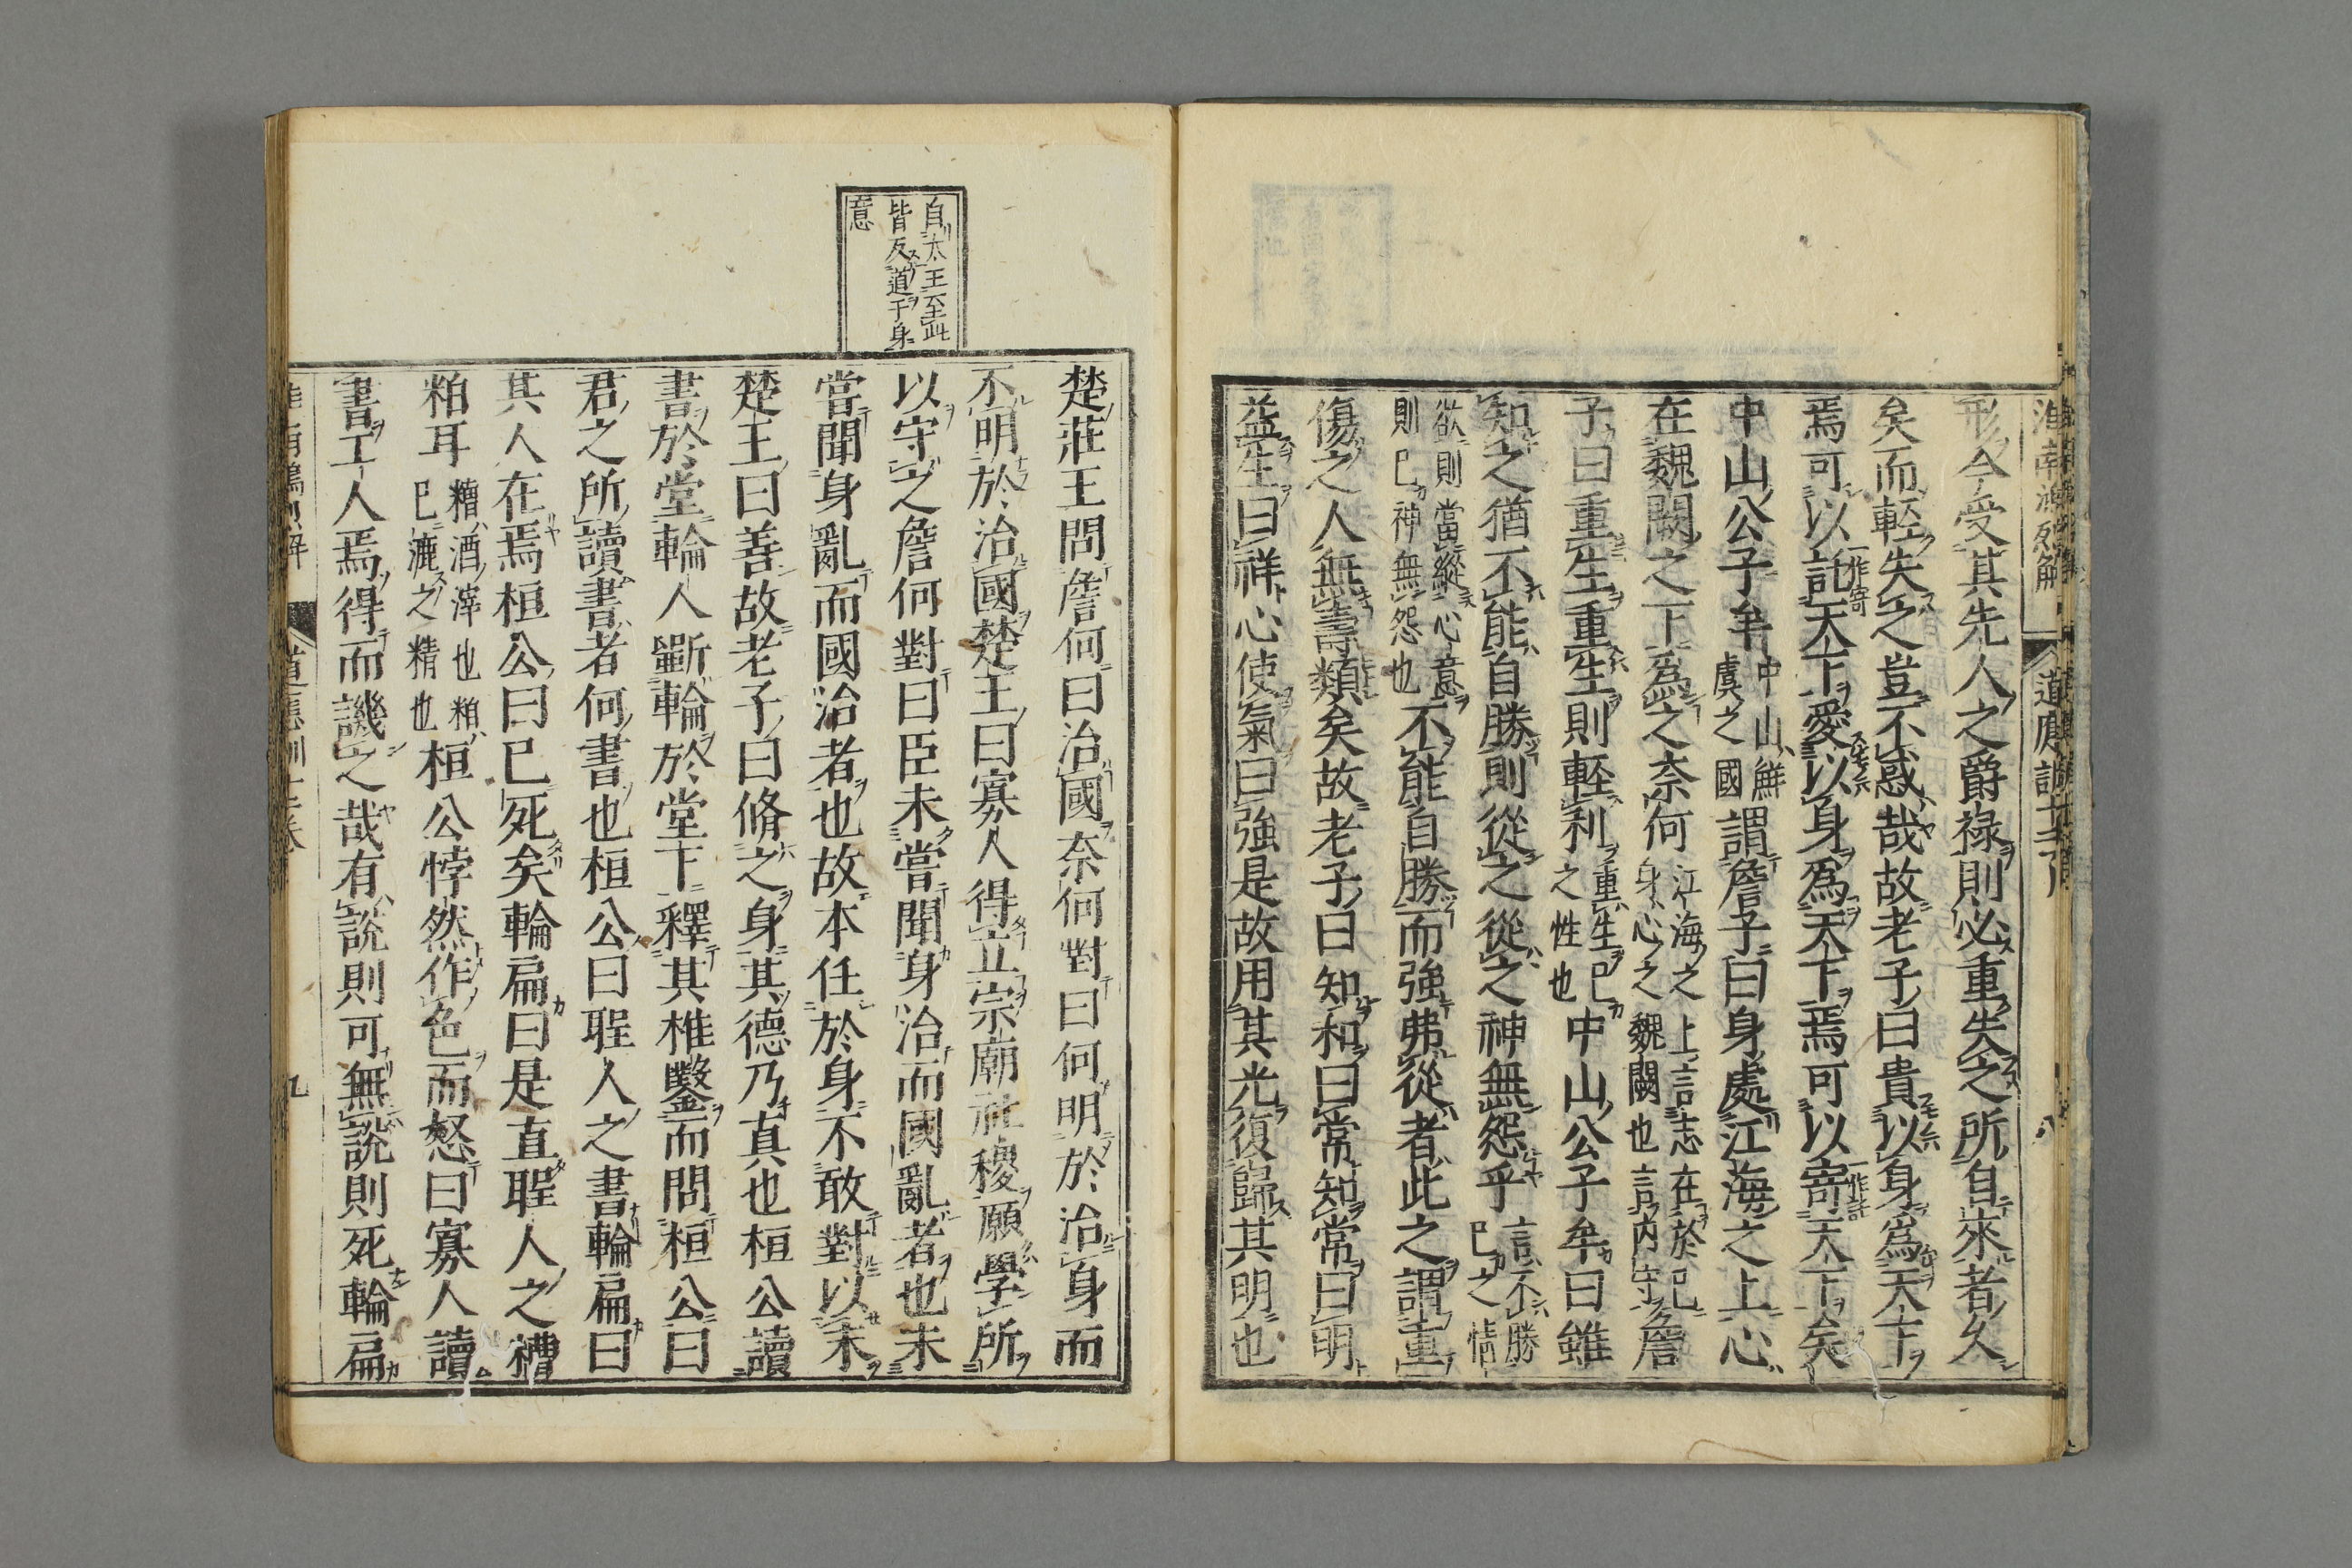 淮南鴻烈解 道應訓十二卷 八
形今受其先人之爵祿則必重失之所自來者久
矣而輕失之豈不惑哉故老子曰貴以身爲天下
焉可以託一作寄天下愛以身爲天下焉可以寄一作託天下矣
中山公子牟中山鮮虞之國謂詹子曰身處江海之上心
在魏闕之下爲之奈何江海之上言志在於已身心之之魏闕也言內守詹
子曰重生重生則輕利重生已之性也中山公子牟曰雖
知之猶不能自勝則從之從之神無怨乎言不勝已之情
欲則當縱心意則已神無怨也不能自勝而強弗從者此之謂重
傷之人無壽類矣故老子曰知和曰常知常曰明
益生曰祥心使氣曰強是故用其光復歸其明也
自太王至此
皆反道于身
意
楚莊王問詹何曰治國奈何對曰何明於治身而
不明於治國楚王曰寡人得立宗廟社稷願學所
以守之詹何對曰臣未嘗聞身治而國亂者也未
嘗聞身亂而國治者也故本任於身不敢對以末
楚王曰善故老子曰脩之身其德乃真也桓公讀
書於堂輪人斲輪於堂下釋其椎鑿而問桓公曰
君之所讀書者何書也桓公曰聖人之書輪扁曰
其人在焉桓公曰已死矣輪扁曰是直聖人之糟
粕耳糟酒滓也粕已漉之精也桓公悖然作色而怒曰寡人讀
書工人焉得而譏之哉有說則可無說則死輪扁
淮南鴻烈解 道應訓十二卷 九